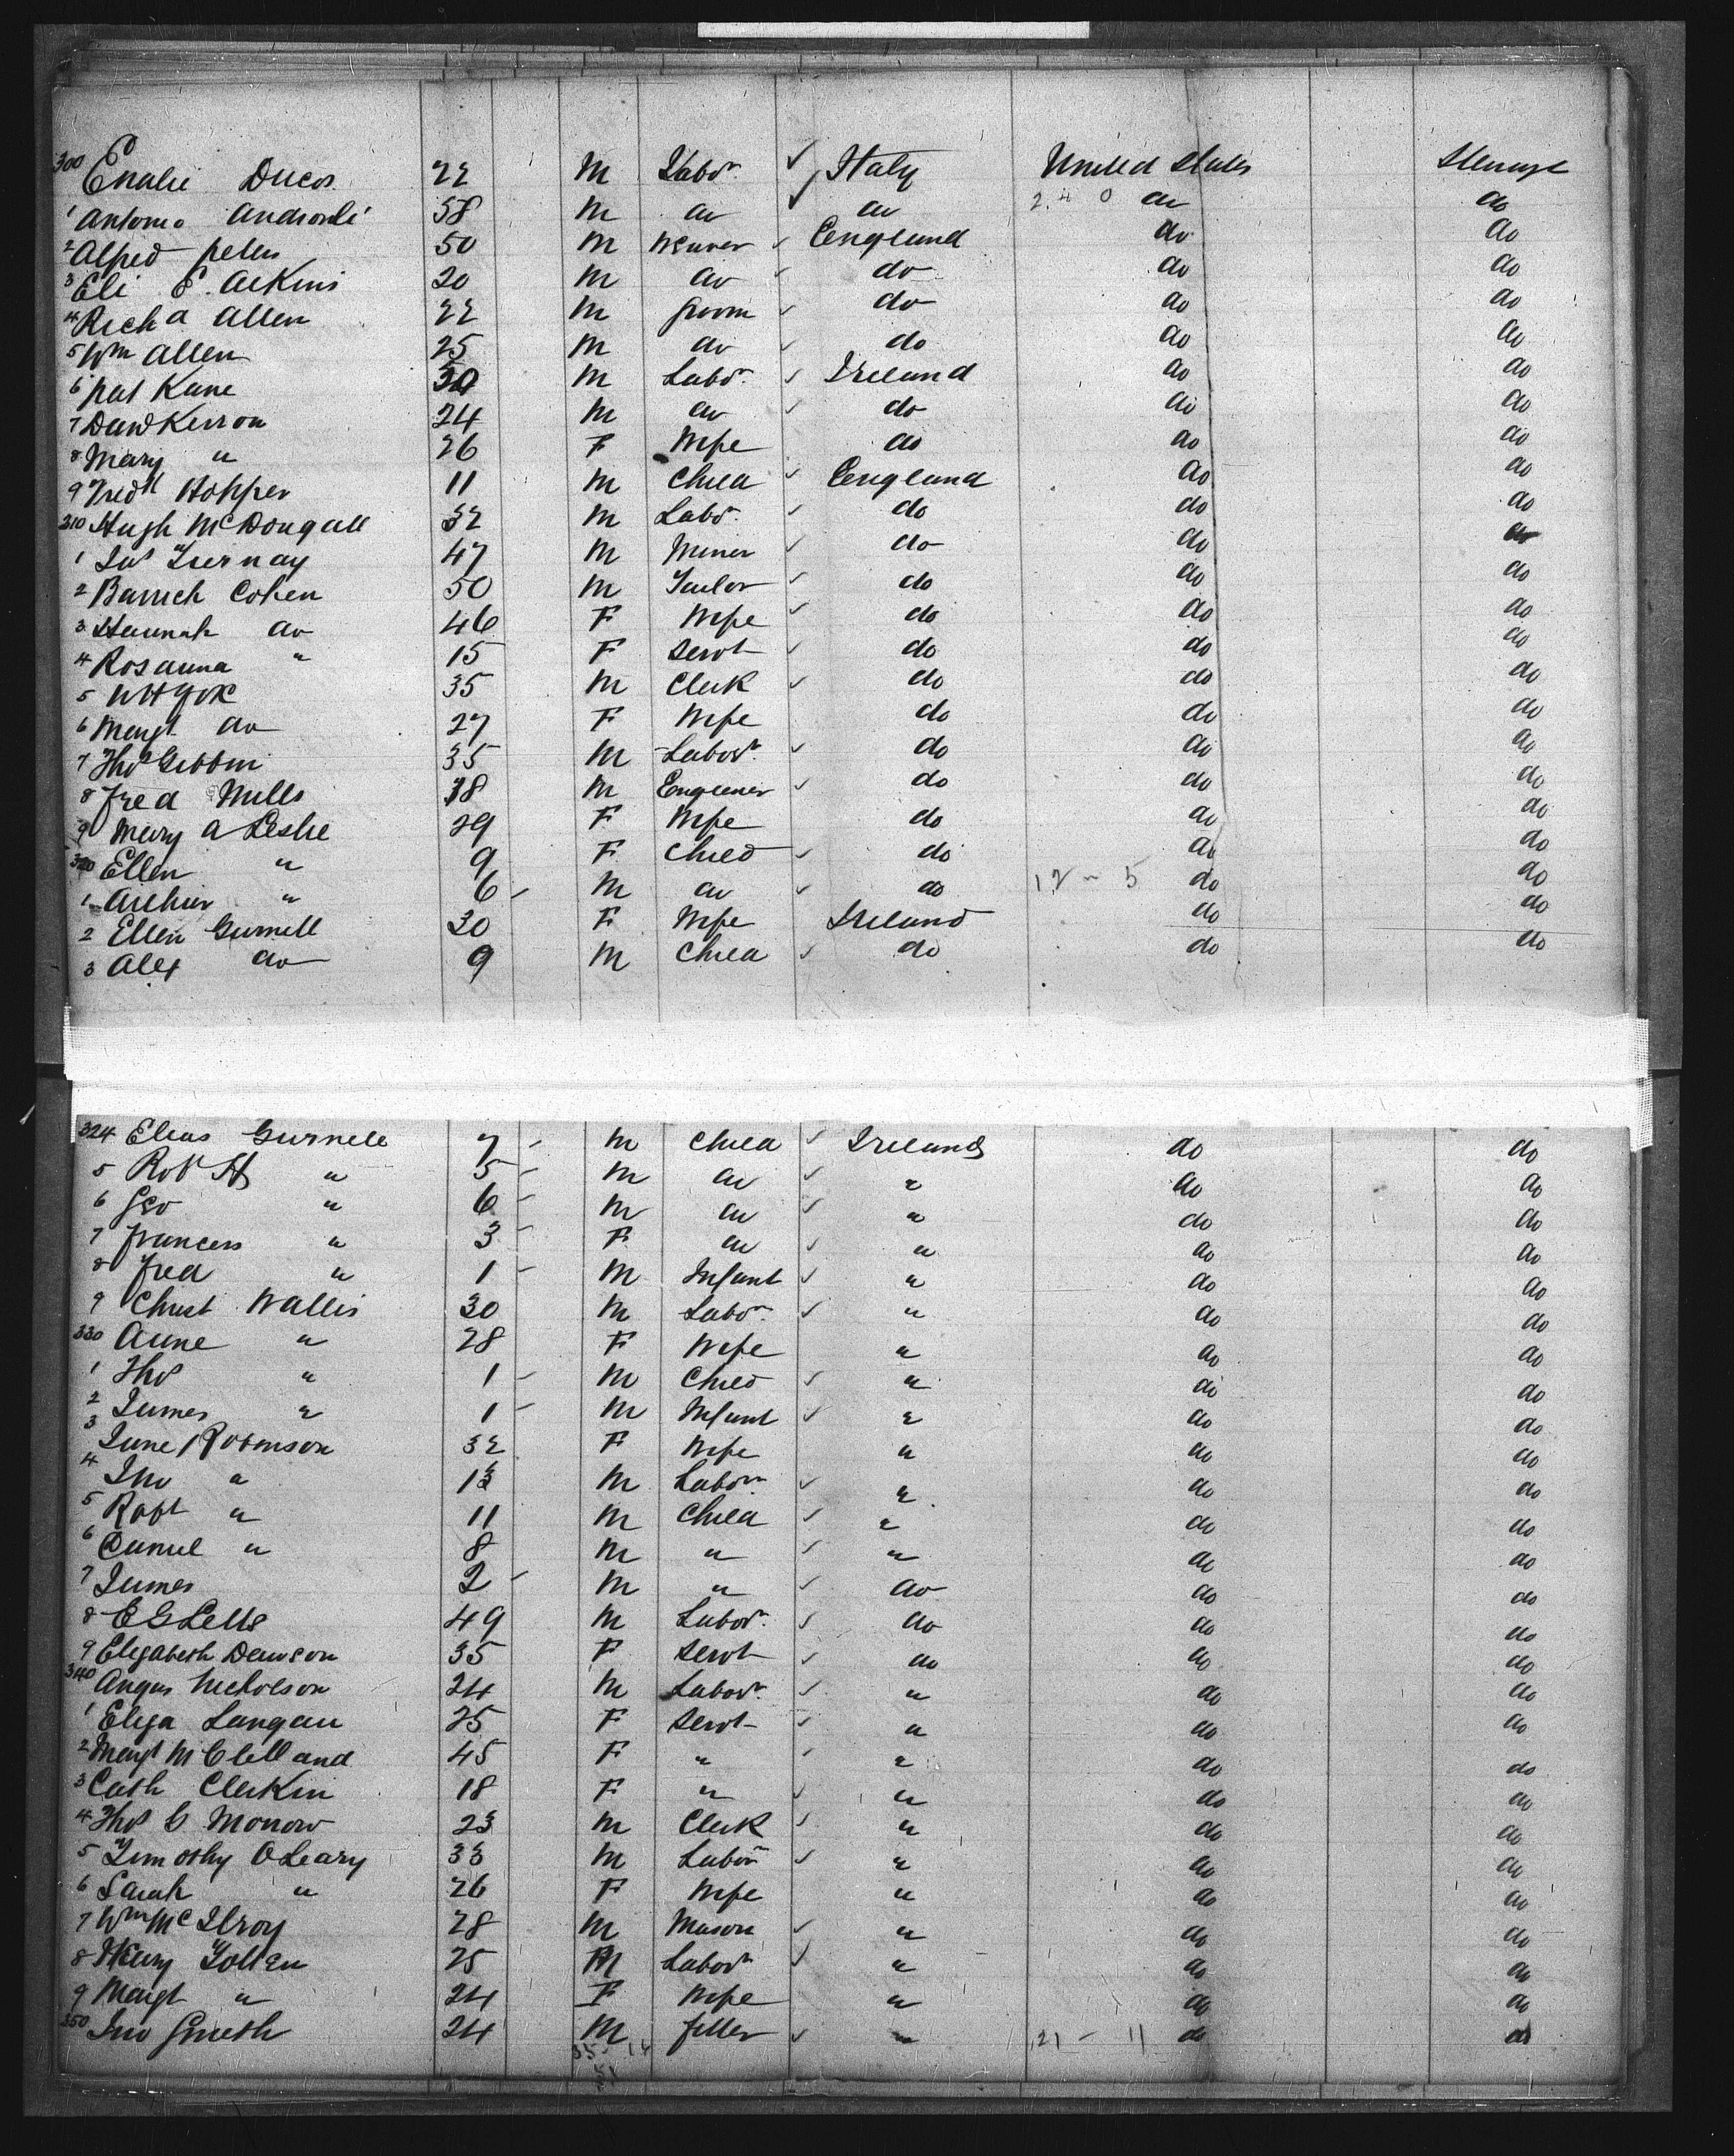 300 Enalie Ducos 22 M Labr. Italy United States Steerage
1 Antonio Androili 58 M do do 2.4 0 do do
2 Alfred peters 50 M Weaver England do do
3 Eli S. Aikins 20 M do do do do
4 Richd Allen 22 M Groom do do do
5 Wm Allen 25 M do do do do
6 pat Kane 30 M Labr. Ireland do do
7 David Kerron 24 M do do do do
8 Mary " 26 F Wife do do do
9 Fredk Hopper 11 M Child England do do
310 Hugh McDougall 32 M Labr. do do do
1 Jas Turnay 47 M Miner do do do
2 Baruch Cohen 50 M Tailor do do do
3 Hannah do 46 F Wife do do do
4 Rosanna " 15 F Servt do do do
5 W H York 35 M Clerk do do do
6 Margt do 27 F Wife do do do
7 Thos Gibbin 35 M Labor. do do do
8 Fred Mills 38 M Engineer do do do
9 Mary A Leslie 29 F Wife do do do
320 Ellen " 9 F Child do do do
1 Arthur " 6 M do do 12 - 5 do do
2 Ellen Gurnell 30 F Wife Ireland do do
3 Alex do 9 M Child do do do
324 Elias Gurnell 7 M Child Ireland do do
5 Robt H " 5 M do " do do
6 Geo " 6 M do " do do
7 Frances " 3 F do " do do
8 Fred " 1 M Infant " do do
9 Christ Wallis 30 M Labr. " do do
330 Anne " 28 F Wife " do do
1 Thos " 1 M Child " do do
2 James " 1 M Infant " do do
3 Jane Robinson 32 F Wife " do do
4 Jno " 13 M Labor. " do do
5 Robt " 11 M Child " do do
6 Daniel " 8 M " " do do
7 James 2 M " do do do
8 E G Lells 49 M Labor. do do do
9 Elizabeth Dawson 35 F Servt do do do
340 Angus Nicholson 24 M Labor. " do do
1 Eliza Langan 25 F Servt " do do
2 Margt McClelland 45 F " " do do
3 Cath Clerkin 18 F " " do do
4 Thos C Monow 23 M Clerk " do do
5 Timothy OLeary 33 M Labor " do do
6 Sarah " 26 F Wife " do do
7 Wm McIlroy 28 M Mason " do do
8 Henry Totten 25 M Labor " do do
9 Margt " 24 F Wife " do do
350 Jno Smith 24 M fitter " 21 - 11 do do
35 - 14